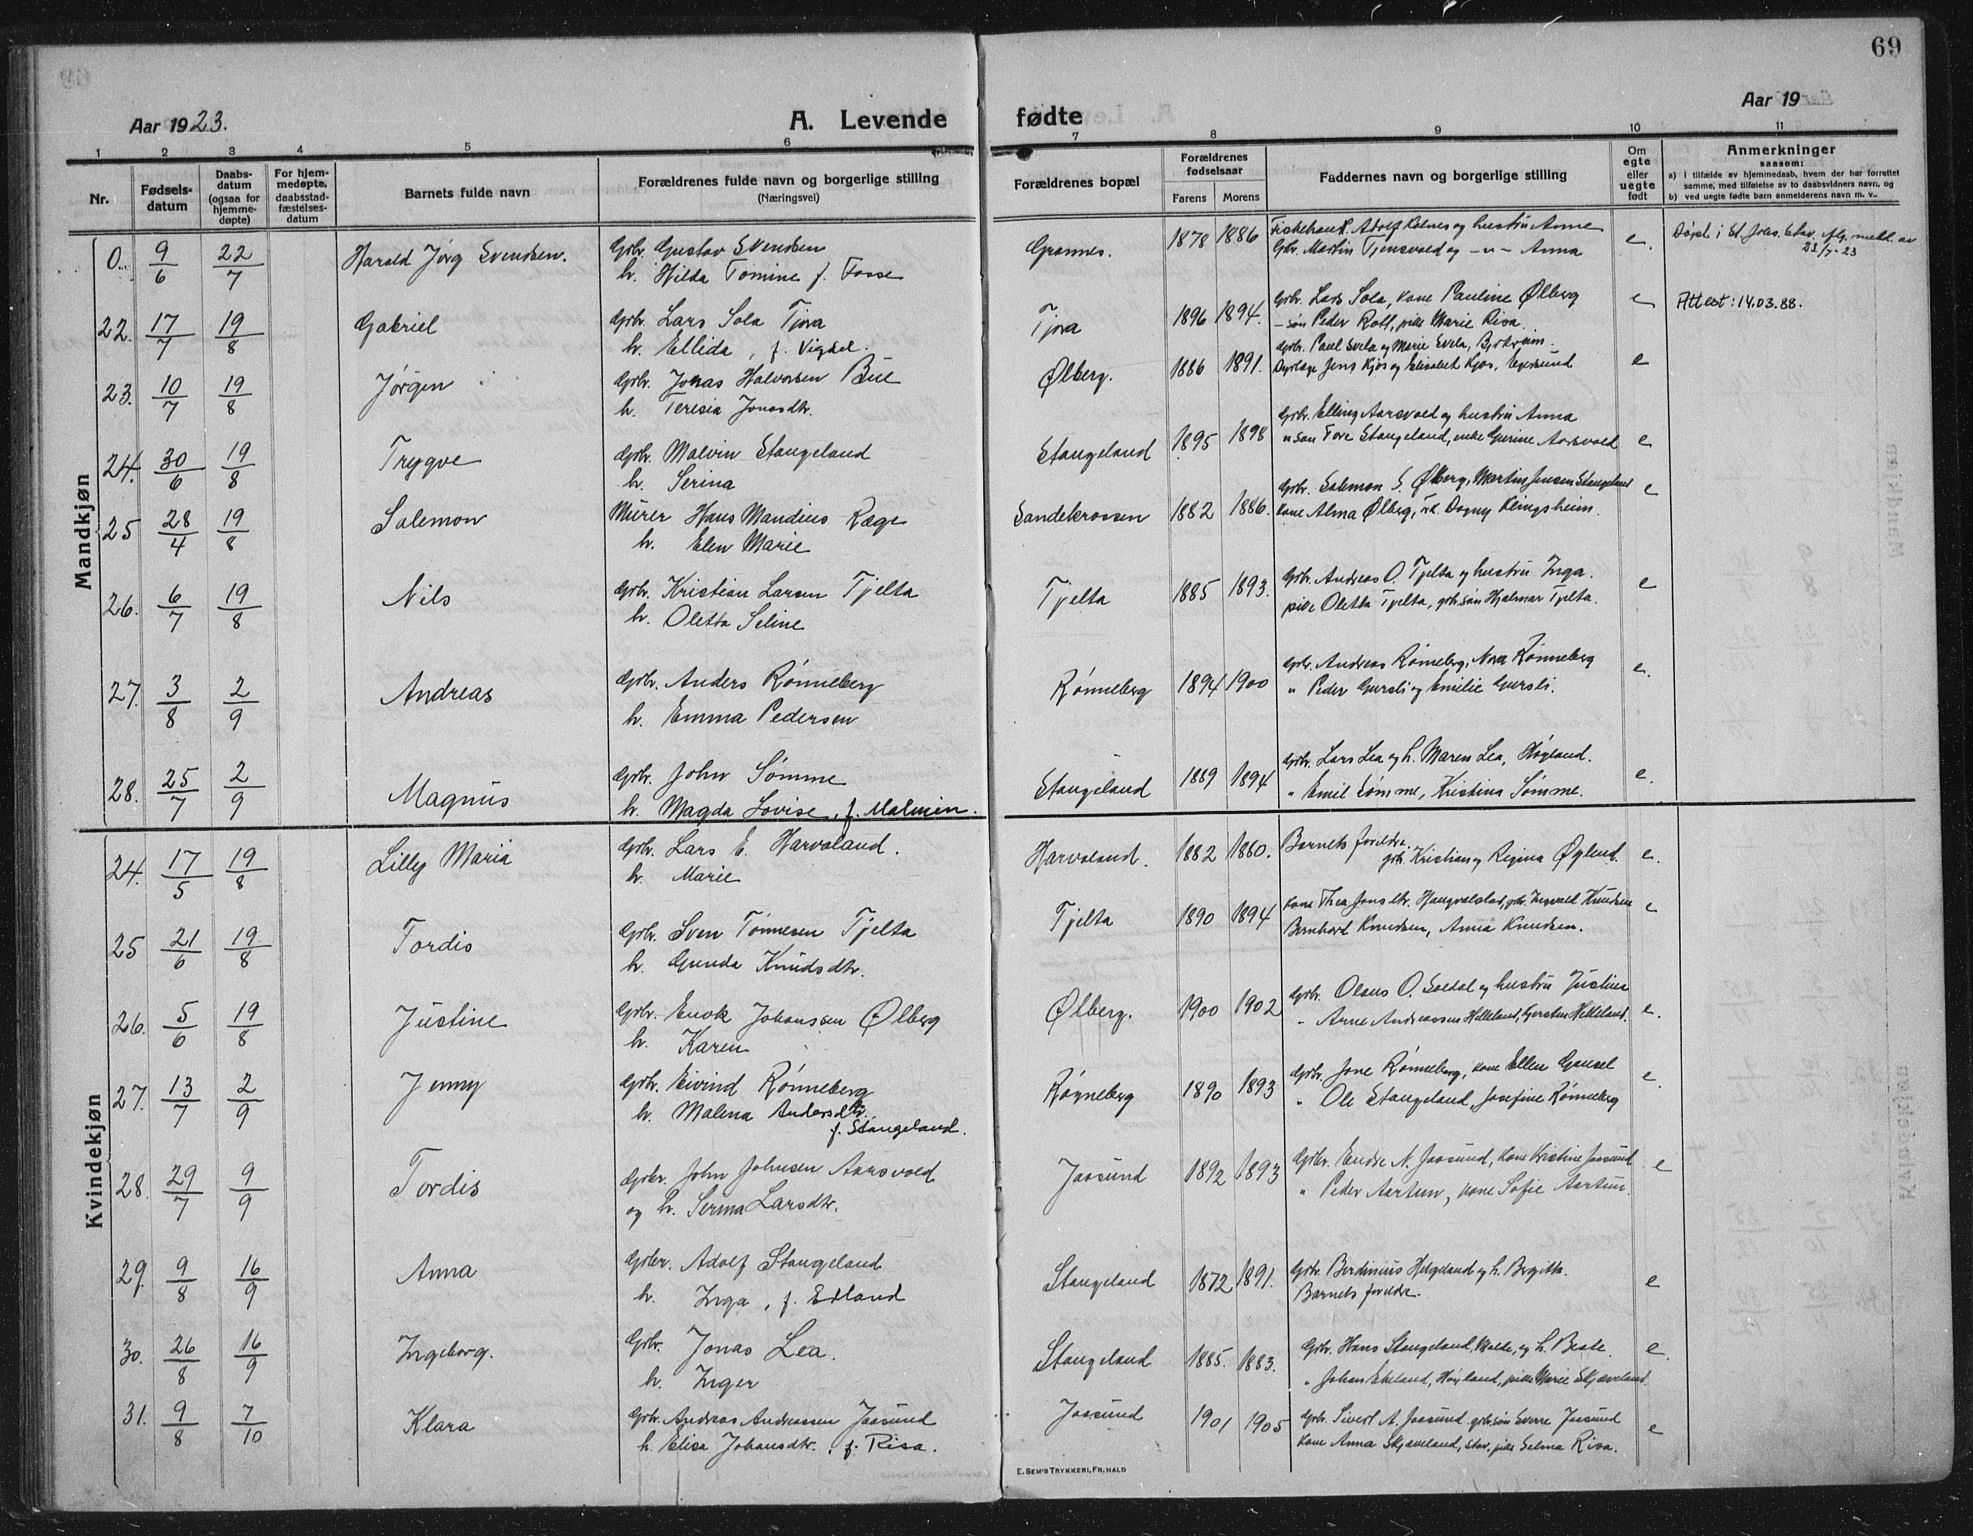 69
Aar 1923.
A. Levende fødte
Aar 19
1 2 3 4 5 6 7 8 9 10 11
Nr.
Fødselsdatum
Daabsdatum (ogsaa for hjemmedøpte)
For hjemmedøpte, daabsstadfæstelsesdatum
Barnets fulde navn
Forældrenes fulde navn og borgerlige stilling
(Næringsvei)
Forældrenes bopæl
Forældrenes fødselsaar
Farens Morens
Faddernes navn og borgerlige stilling
Om egte eller uegte født
Anmerkninger
saasom:
a) i tilfælde av hjemmedaab, hvem der har forrettet samme, med tilføielse av to daabsvidners navn, og
b) ved uegte fødte barn anmelderens navn m. v..
Mandkjøn
0. 9/6 22/7 Harald Jørg Svendsen. Gbr. Gustav Svendsen Grannes. 1878 1886 Fiskehand. Adolf Kolnes og hustru Anne e.
h. Hilda Tomine f. Fosse Gbr. Martin Tjensvold og -"- Anna
23/7-23
22. 17/7 19/8 Gabriel Gbr. Lars Sola Tjora Tjora 1896 1894. Gbr. Lars Sola, kone Pauline Ølberg e Attest: 14.03.88.
h. Ellida, f. Vigdel. - søn Peder Rott, pike Marie Risa.
23. 10/7 19/8 Jørgen Gbr. Jonas Halvorsen Bue Ølberg. 1886 1891. Gbr. Paul Svela og Marie Svela, Bjerkreim. e
h. Teresia Jonasdtr. Jens Kjos og Elisabet Kjos, Egersund
24. 30/6 19/8 Trygve Gbr. Malvin Stangeland Stangeland 1895 1898 Gbr. Elling Aarsvold og hustru Anna e
h. Serina " søn Tore Stangeland, enke Gurine Aarsvold
25 28/4 19/8 Salemon Murer Hans Mandius Ræge Sandekrossen 1882 1886. Gbr. Salemon S. Ølberg, Martin Jensen Stangeland e
h. Elen Marie kone Alma Ølberg, Dagny Klingsheim.
26. 6/7 19/8 Nils Gbr. Kristian Larsen Tjelta Tjelta 1885 1893. Gbr. Andreas O. Tjelta og hustru Inga. e
h. Oletta Seline pike Oletta Tjelta, gbr.søn Hjalmar Tjelta.
27. 3/8 2/9 Andreas Gbr. Anders Rønneberg Rønneberg 1894 1900 Gbr. Andreas Rønneberg, Nora Rønneberg e.
h. Emma Pedersen " Peder Gursli og Emilie Gursli.
28. 25/7 2/9 Magnus Gbr. John Sømme Stangeland 1889 1894 Gbr. Lars Lea og h. Maren Lea, Høyland. e.
h. Magda Lovise, f. Malmin. " Emil Sømme, Kristina Sømme.
Kvindekjøn
24. 17/5 19/8 Lilly Maria Gbr. Lars E. Harvaland. Harvaland. 1882 1880. Barnets foreldre. e.
h. Marie gbr. Kristian og Regina Øglend.
25 21/6 19/8 Tordis Gbr. Sven Tønnesen Tjelta Tjelta 1890 1894 kone Thea Jonsdtr. Haugvaldstad, gbr. Ingvald Knudsen e
h. Gunda Knudsdtr. Bernhard Knudsen, Anna Knudsen.
26. 5/6 19/8 Justine Gbr. Enok Johanssen Ølberg Ølberg. 1900 1902 Gbr. Olaus O. Soldal og hustru Justine e.
h. Karen " Arne Andreassen Helleland, Helleland.
27. 13/7 2/9 Jenny Gbr. Eivind Rønneberg Røgneberg 1890 1893 Gbr. Jone Rønneberg, kone Ellen Gausel e.
h. Malena Andersdtr. " Ole Stangeland, Josefine Rønneberg
f. Stangeland.
28. 29/7 9/9 Tordis Gbr. John Johnsen Aarsvold Jaasund 1892 1893 Gbr. Endre N. Jaasund, kone Kristine Jaasund e
og h. Serina Larsdtr. " Peder Aartun, kone Sofie Aartun.
29. 9/8 16/9 Anna Gbr. Adolf Stangeland Stangeland 1872 1891. Gbr. Berdinius Helgeland og h. Bergitta. e
h. Inga, f. Edland Barnets foreldre.
30. 26/8 16/9 Ingeborg. Gbr. Jonas Lea. Stangeland 1885. 1883. Gbr. Hans Stangeland, Malde, og h. Beate. e.
h. Inger " Johan Ekeland, Høyland, pike Marie Skjæveland.
31. 9/8 7/10 Klara Gbr. Andreas Andreassen Jaasund Jaasund 1901 1905 Gbr. Sivert A. Jaasund gbr.søn Sverre Jaasund e
h. Elisa Johansdtr., f. Risa. kone Anna Skjæveland, Stav, pike Selma Risa.
E. SEM'S TRYKKERI, FR.HALD